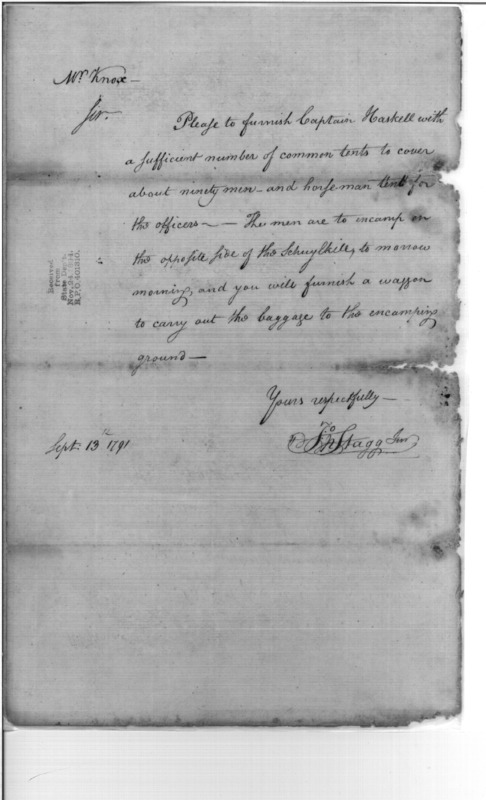 Mr Knox —
Sir.
Please to furnish Captain Haskell with
a sufficient number of common tents to cover
about ninety men – and horseman tent for
the officers ~ — The men are to incamp on
the opposite side of the Schuylkill, to morrow
morning, and you will furnish a waggon
to carry out the baggage to the encamping
ground —
Yours respectfully —
Jno Stagg Jun
Sept. 13th 1791
Received
from
State Dep't.